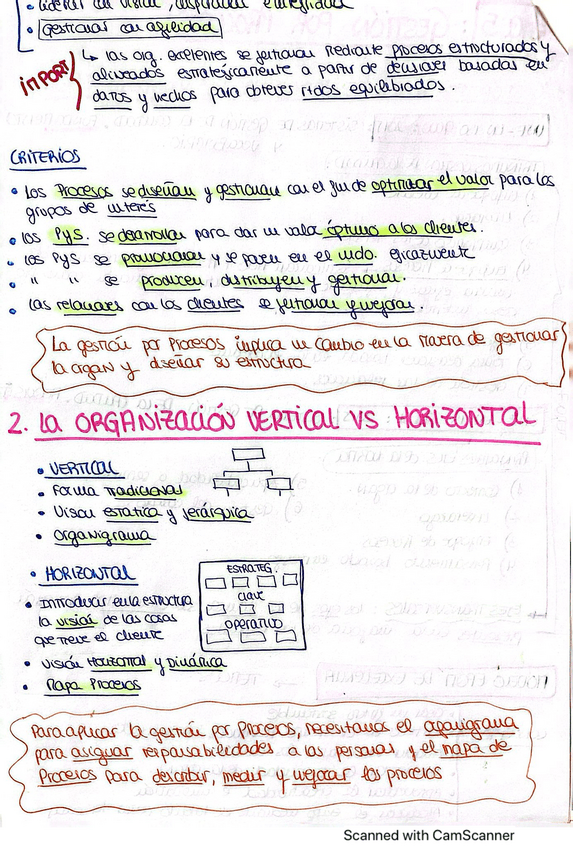 • Liderar con visión, inspiración e integridad
• Gestionar con agilidad
↳ las org. excelentes se gestionan mediante procesos estructurados y
import
alineados estratégicamente a partir de decisiones basadas en
datos y hechos para obtener rtdos equilibrados.
CRITERIOS
• Los Procesos se diseñan y gestionan con el fin de optimizar el valor para los
grupos de interés
• los PyS. se desarrollan para dar un valor óptimo a los clientes.
• los PyS se promocionan y se ponen en el mdo. eficazmente
• " " se producen, distribuyen y gestionan.
• Las relaciones con los clientes se gestionan y mejoran.
La gestión por Procesos implica un cambio en la manera de gestionar
la organ y diseñar su estructura
2. La ORGANIZACIÓN VERTICAL VS HORIZONTAL
• VERTICAL
• Forma Tradicional
• Visión estática y jerárquica
• Organigrama
• HORIZONTAL
• Introducir en la estructura
la visión de las cosas
que tiene el cliente
• Visión Horizontal y Dinámica
• Mapa Procesos
ESTRATEG.
CLAVE
OPERATIVO
Para aplicar la gestión por Procesos, necesitamos el organigrama
para asignar responsabilidades a las personas y el mapa de
Procesos para describir, medir y mejorar los procesos
Scanned with CamScanner